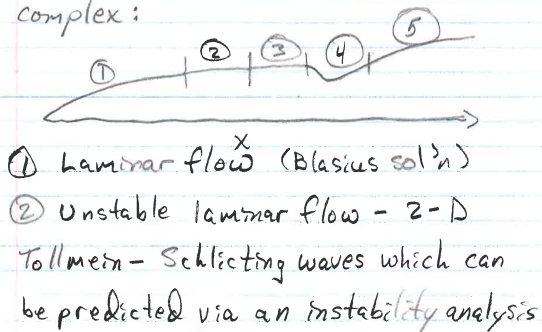 complex:
① ② ③ ④ ⑤
x
① Laminar flow (Blasius sol'n)
② Unstable laminar flow - 2-D
Tollmein - Schlicting waves which can
be predicted via an instability analysis